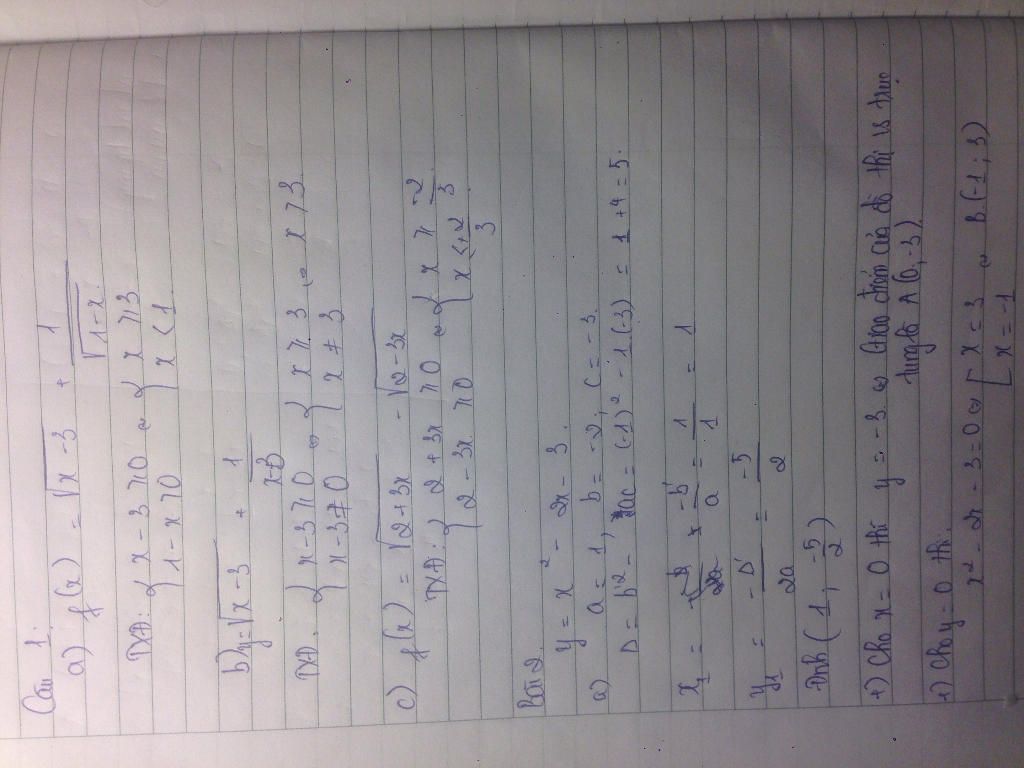 Câu 1:
a) f(x) = √(x - 3) + 1/√(1 - x)
TXĐ: { x - 3 ≥ 0 ⇔ { x ≥ 3
{ 1 - x > 0 { x < 1
b) y = √(x - 3) + 1/(x - 3)
TXĐ: { x - 3 ≥ 0 ⇔ { x ≥ 3 ⇔ x > 3
{ x - 3 ≠ 0 { x ≠ 3
c) f(x) = √(2 + 3x) - √(2 - 3x)
TXĐ: { 2 + 3x ≥ 0 ⇔ { x ≥ -2/3
{ 2 - 3x ≥ 0 { x ≤ 2/3
Bài 2.
y = x² - 2x - 3.
a) a = 1, b = -2; c = -3.
Δ = b² - ac = (-1)² - 1(-3) = 1 + 4 = 5.
x₁ = -b'/a = 1/1 = 1
y₁ = -Δ/2a = -5/2
Đỉnh (1; -5/2)
+) Cho x = 0 thì y = -3 ⇔ Giao điểm của đồ thị vs trục
tung là A(0; -3)
+) Cho y = 0 thì
x² - 2x - 3 = 0 ⇔ [ x = 3 ⇔ B(-1; 3)
[ x = -1